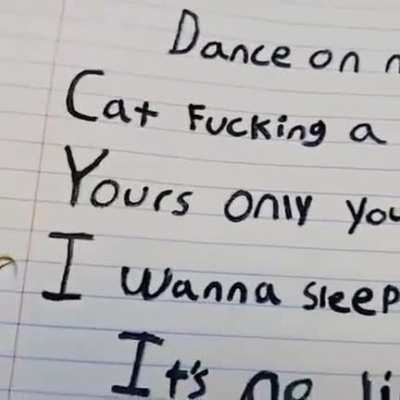 Dance on
Cat Fucking a
Yours only you
I wanna sleep
It's no